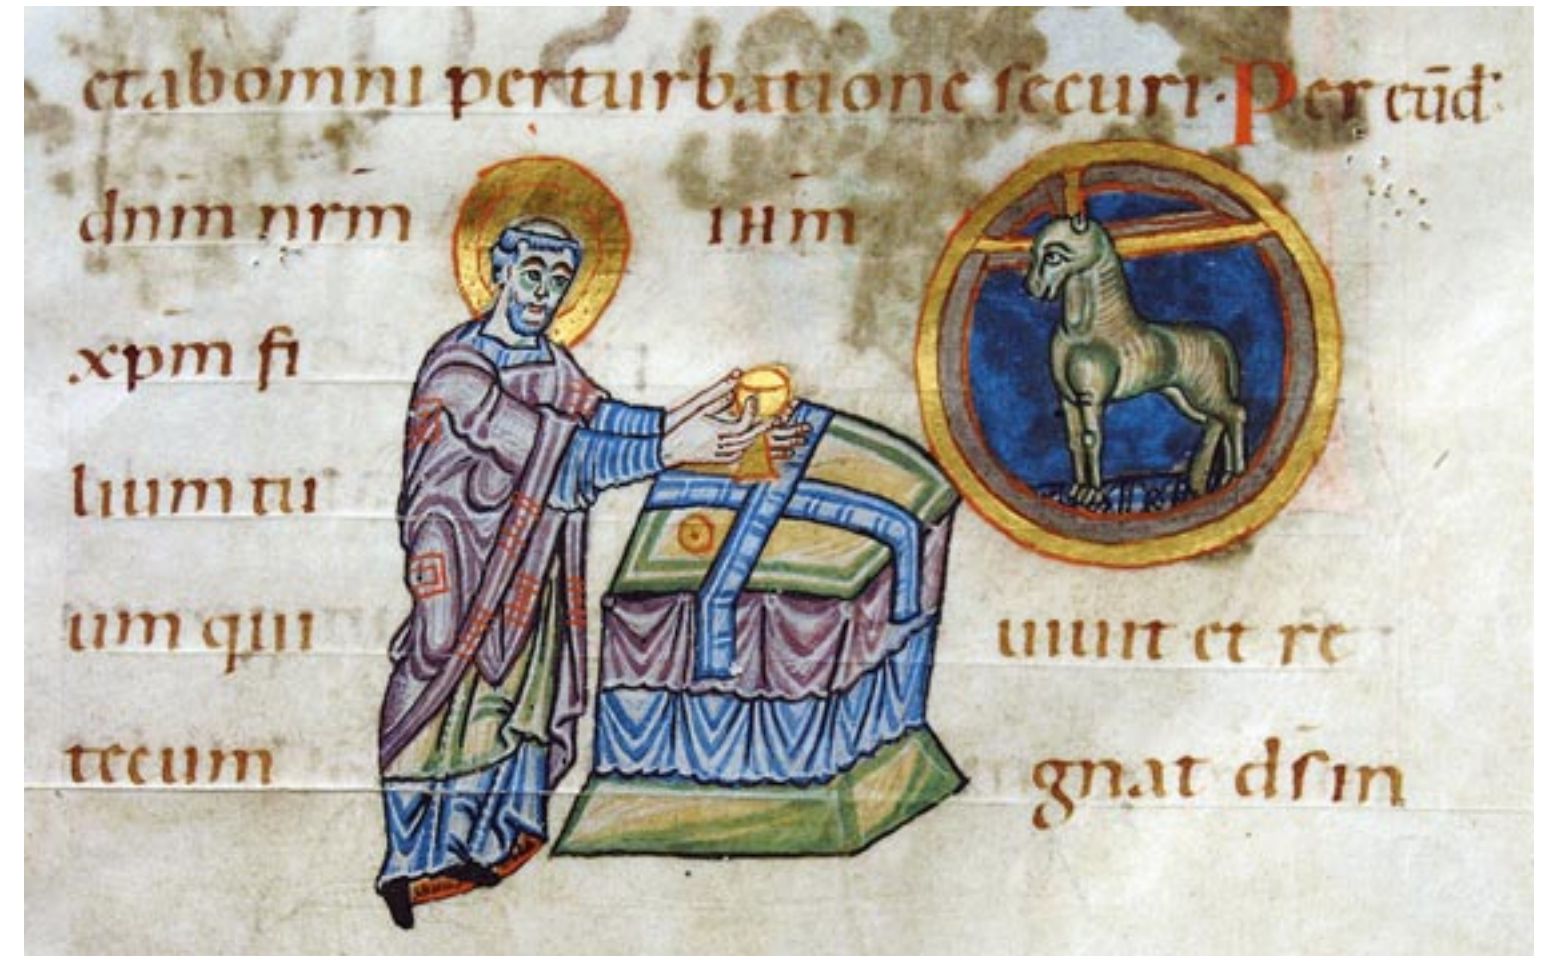 et ab omni perturbatione securi· Per eūd
dn̄m nr̄m IHm̄
xpm̄ fi
lium tu
um qui uiuit et re
tecum gnat dſ in